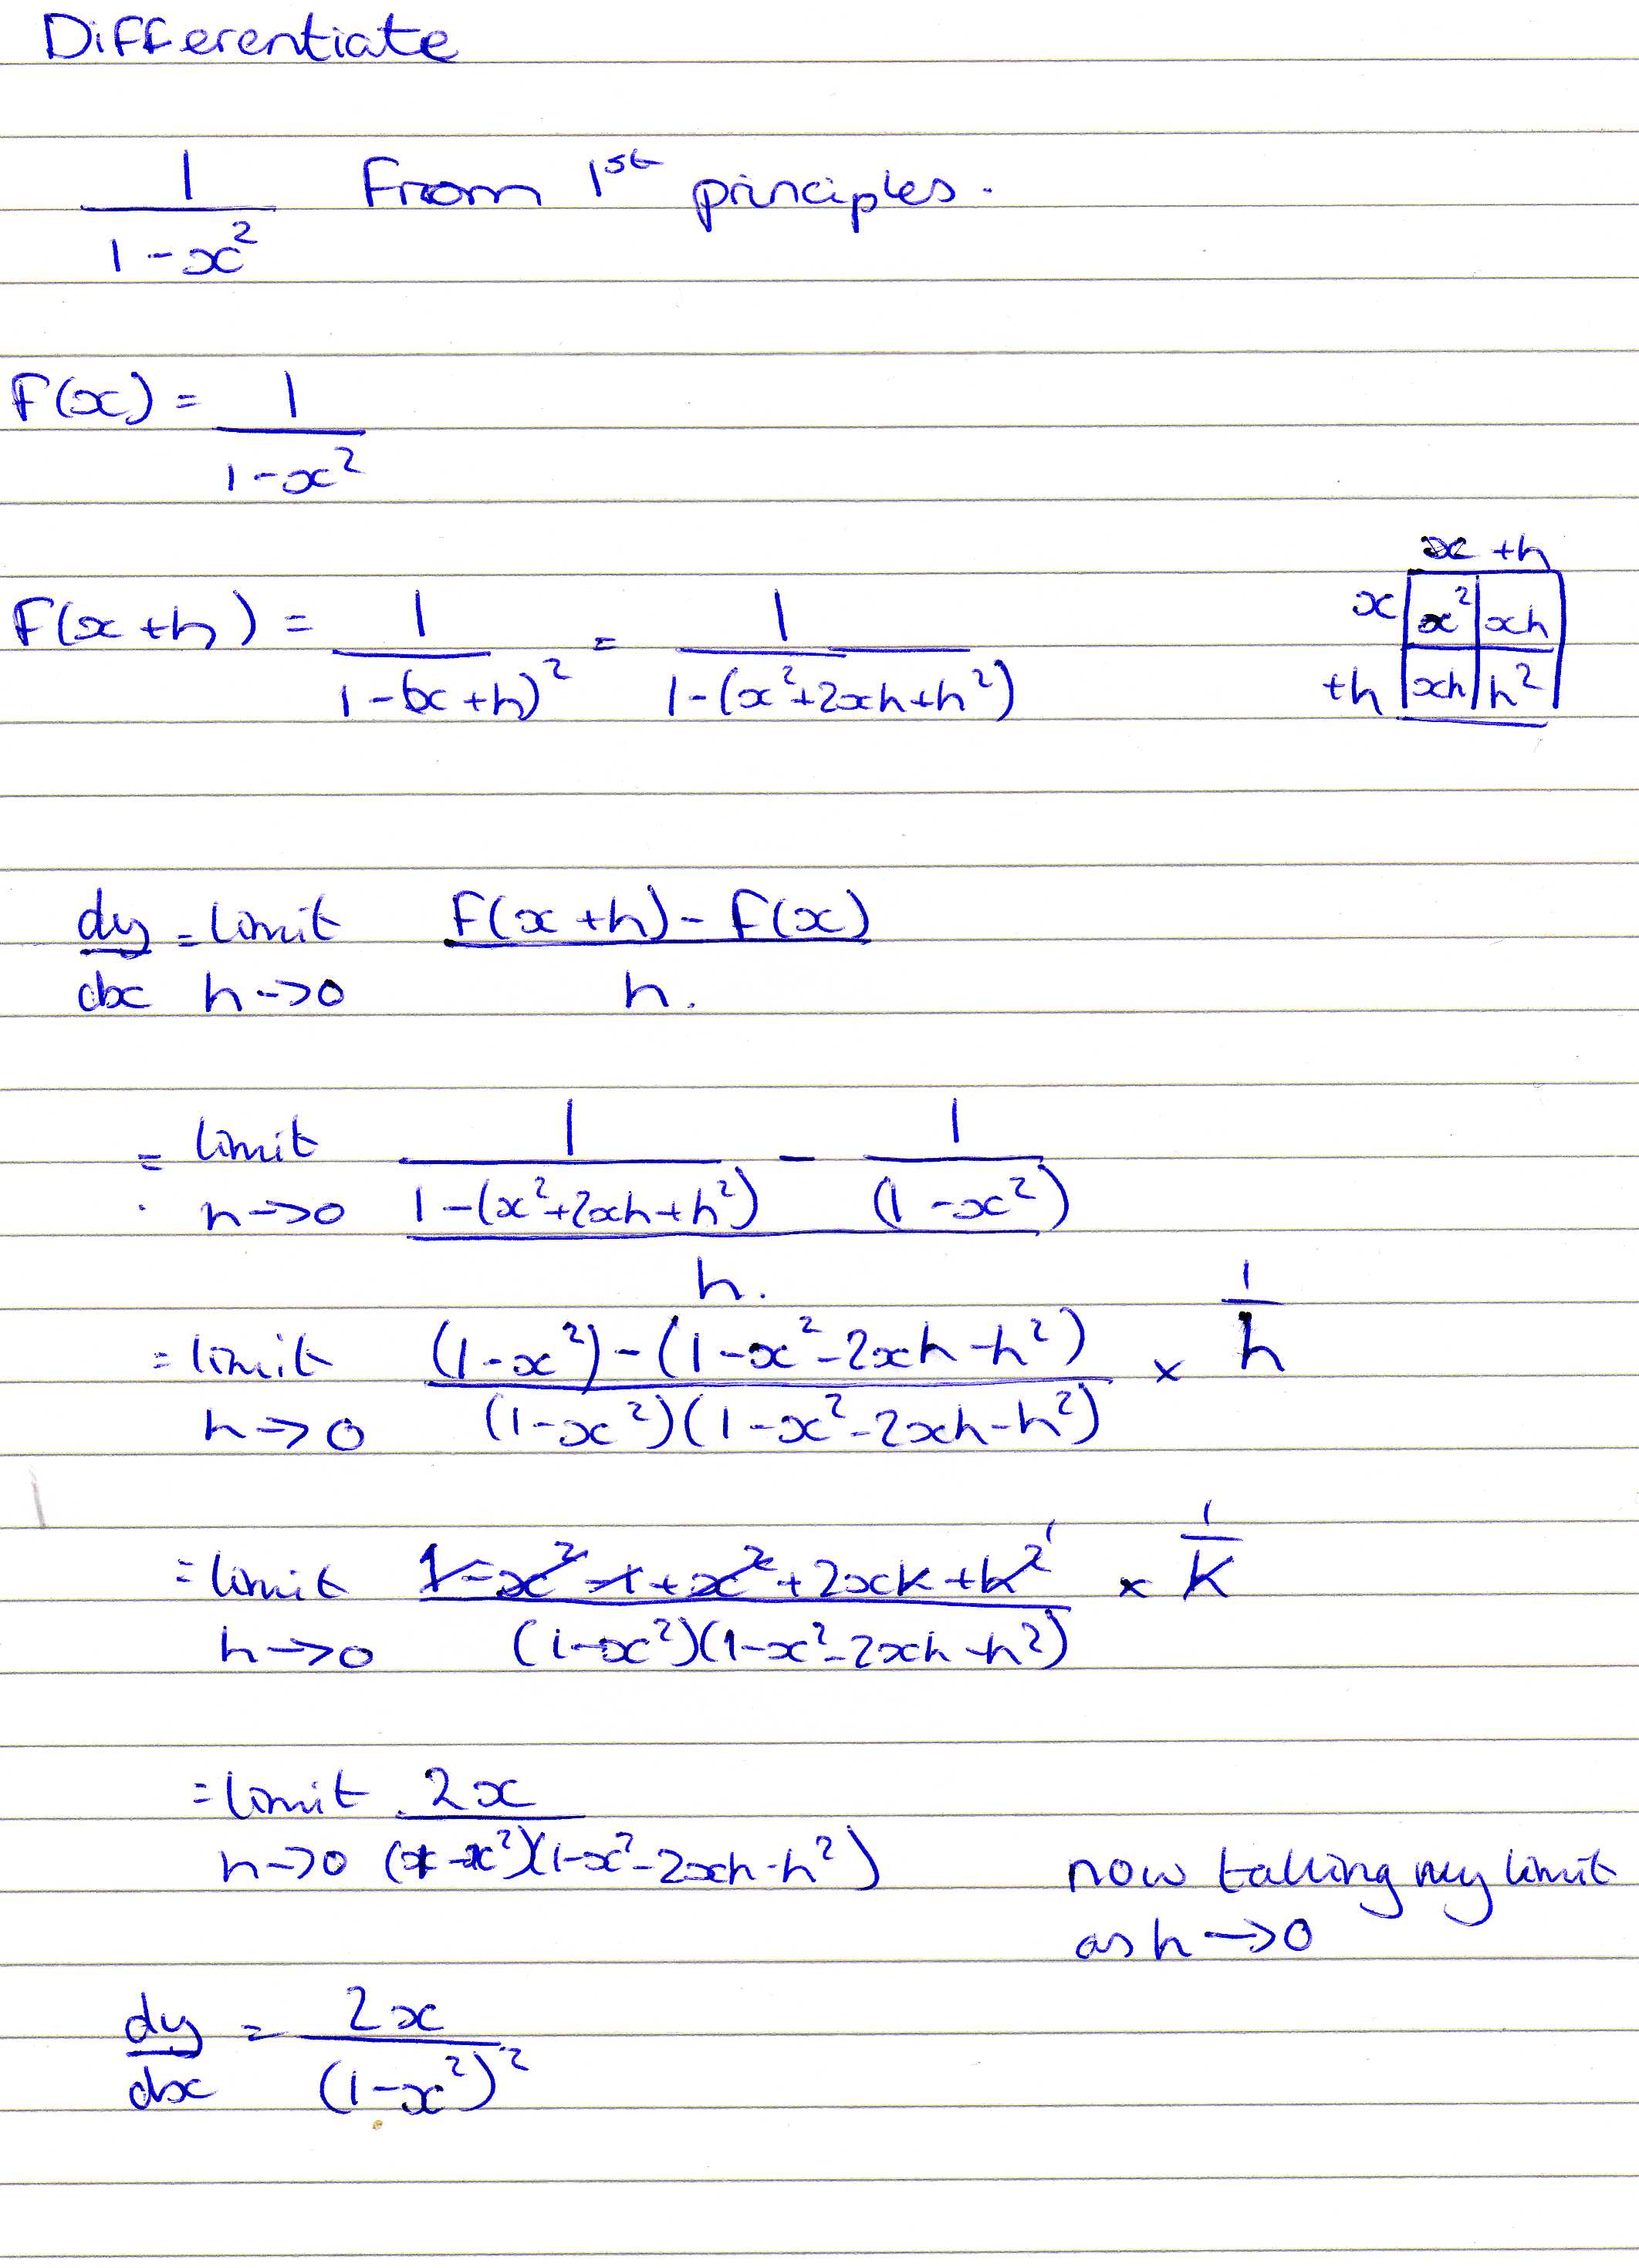 Differentiate
1/(1-x²) From 1st principles.
F(x) = 1/(1-x²)
x +h
F(x+h) = 1/(1-(x+h)²) = 1/(1-(x²+2xh+h²))
x x² xh
+h xh h²
dy/dx = limit h→0 (F(x+h)-F(x))/h.
= limit h→0 (1/(1-(x²+2xh+h²)) - 1/(1-x²))/h.
= limit h→0 ((1-x²)-(1-x²-2xh-h²))/((1-x²)(1-x²-2xh-h²)) × 1/h
= limit h→0 (1-x²-1+x²+2xh+h²)/((1-x²)(1-x²-2xh-h²)) × 1/h
= limit h→0 2x/((1-x²)(1-x²-2xh-h²))
now taking my limit
as h→0
dy/dx = 2x/(1-x²)²